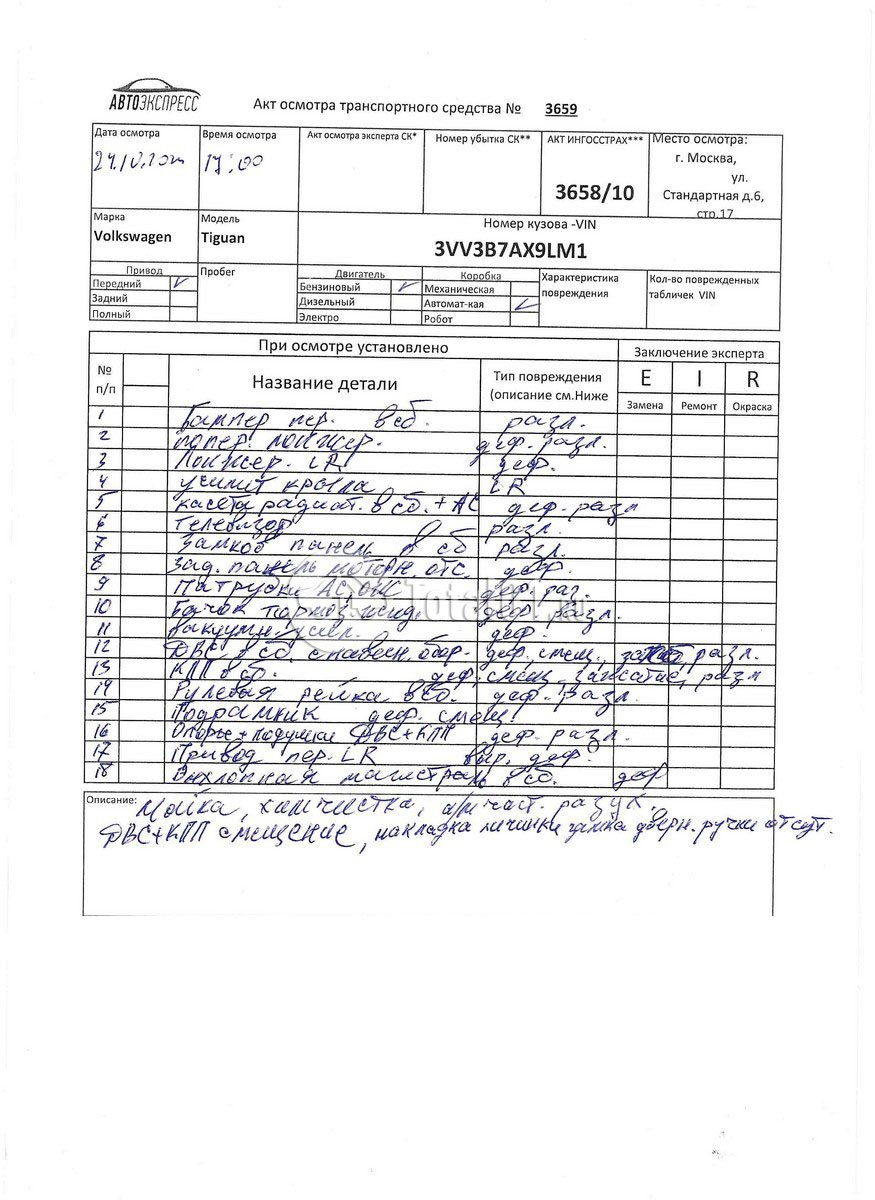 АВТОЭКСПРЕСС
Акт осмотра транспортного средства № 3659
Дата осмотра Время осмотра Акт осмотра эксперта СК* Номер убытка СК** АКТ ИНГОССТРАХ*** Место осмотра:
17:00 3658/10 г. Москва,
ул.
Стандартная д.6,
стр.17
Марка Модель Номер кузова -VIN
Volkswagen Tiguan 3VV3B7AX9LM1
Привод Пробег Двигатель Коробка Характеристика повреждения Кол-во поврежденных табличек VIN
Передний Бензиновый Механическая
Задний Дизельный Автомат-кая
Полный Электро Робот
При осмотре установлено Заключение эксперта
№ п/п Название детали Тип повреждения (описание см.Ниже E I R
Замена Ремонт Окраска
1 Бампер пер. в сб. разл.
2 попер. лонжер. деф. разл.
3 Лонжер. LR деф.
4 усилит крыла LR
5 касета радиат. в сб. + АС деф. разл
6 телевизор разл.
7 Замков панель в сб разл.
8 Зад. панель моторн. отс. деф.
9 Патрубки АС, ОЖ деф. раз.
10 Бачок тормоз. жид. деф разл.
11 Вакуумн. усил. деф.
12 ДВС в сб. с навесн. обор. деф. смещ., разл.
13 КПП в сб. деф, смещ, зажатие, разл
14 Рулевая рейка в сб. деф. разл.
15 Подрамник деф. смещ
16 Опоры + подушки ДВС+КПП деф. разл.
17 Привод пер. LR выр. деф.
18 Выхлопная магистраль в сб. деф
Описание: Мойка, химчистка, а/м част. разук.
ДВС+КПП смещение, накладка личинки замка дверн. ручки отсут.
Total01.ru